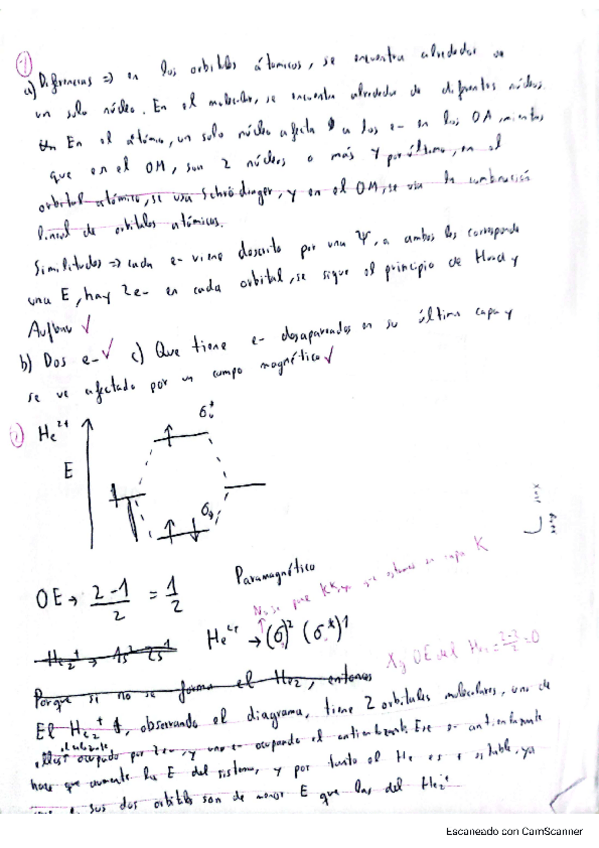 1)
a) Diferencias => en los orbitales átomicos, se encuentra alrededor de
un solo núcleo. En el molecular, se encuentra alrededor de diferentes núcleos.
En el átomo, un solo núcleo afecta a los e- en los OA, mientras
que en el OM, son 2 núcleos o más y por último, en el
orbital atómico, se usa Schrödinger, y en el OM, se usa la combinación
lineal de orbitales atómicos.
Similitudes => cada e- viene descrito por una Ψ, a ambos les corresponde
una E, hay 2e- en cada orbital, se sigue el principio de Hund y
Aufbau ✓
b) Dos e- ✓ c) Que tiene e- desapareados en su última capa y
se ve afectado por un campo magnético ✓
He 2+
σ*
E
σ
OE → 2-1/2 = 1/2
Paramagnético
K
He → (σ)² (σ*)1
OE del = 0
Porque si no se forma el He2, entonces
El He2+, observando el diagrama, tiene 2 orbitales moleculares, uno de
ocupado por 2e-, y uno e- ocupando el antienlazante. Ese e- antienlazante
hace que aumente la E del sistema, y por tanto el He es estable, ya
sus dos orbitales son de menor E que las del He2+
Escaneado con CamScanner